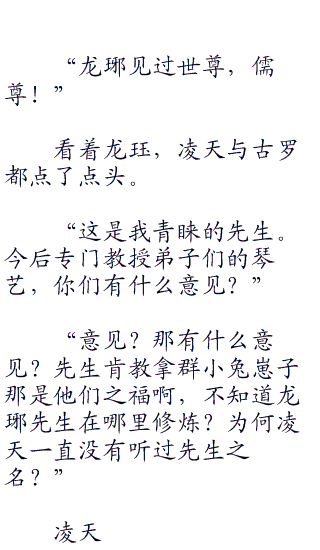 “龙琊见过世尊，儒
尊！”
看着龙珏，凌天与古罗
都点了点头。
“这是我青睐的先生。
今后专门教授弟子们的琴
艺，你们有什么意见？”
“意见？那有什么意
见？先生肯教拿群小兔崽子
那是他们之福啊，不知道龙
琊先生在哪里修炼？为何凌
天一直没有听过先生之
名？”
凌天